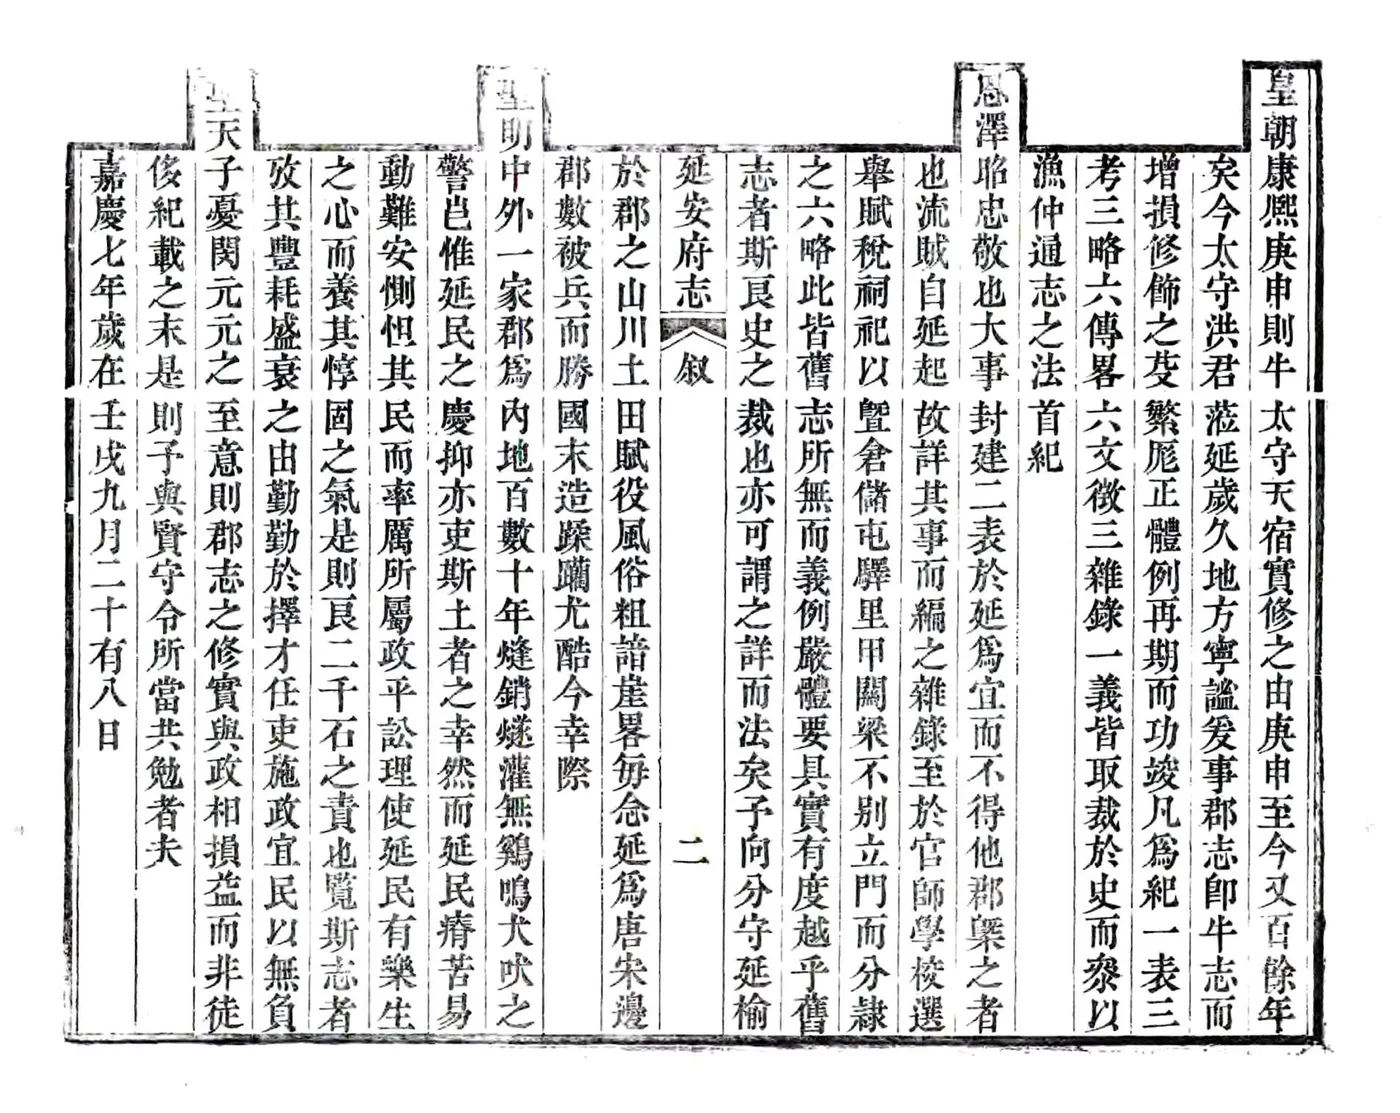 皇朝康熙庚申則牛太守天宿實修之由庚申至今又百餘年
矣今太守洪君蒞延歲久地方寧謐爰事郡志卽牛志而
增損修飾之芟繁厖正體例再期而功竣凡爲紀一表三
考三略六傳畧六文徵三雜錄一義皆取裁於史而叅以
漁仲通志之法首紀
恩澤昭忠敬也大事封建二表於延爲宜而不得他郡槩之者
也流賊自延起故詳其事而編之雜錄至於官師學校選
舉賦稅祠祀以曁倉儲屯驛里甲關梁不別立門而分隷
之六略此皆舊志所無而義例嚴體要具實有度越乎舊
志者斯良史之裁也亦可謂之詳而法矣予向分守延榆
延安府志 叙 二
於郡之山川土田賦役風俗粗諳崖畧每念延爲唐宋邊
郡數被兵而勝國末造蹂躪尤酷今幸際
聖明中外一家郡爲內地百數十年烽銷燧灌無鷄鳴犬吠之
警邑惟延民之慶抑亦吏斯土者之幸然而延民瘠苦易
動難安惻怛其民而率厲所屬政平訟理使延民有樂生
之心而養其惇固之氣是則良二千石之責也覽斯志者
攷其豐耗盛衰之由勤勤於擇才任吏施政宜民以無負
聖天子憂閔元元之至意則郡志之修實與政相損益而非徒
侈紀載之末是則予與賢守令所當共勉者夫
嘉慶七年歲在壬戌九月二十有八日